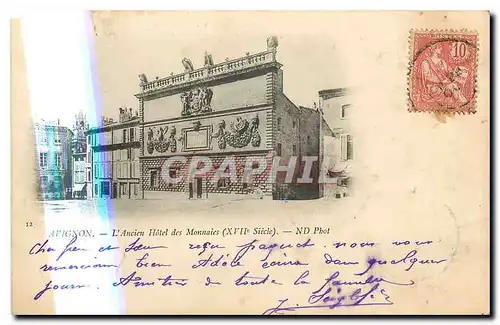 10
CARTE POSTALE
12
AVIGNON. — L'Ancien Hôtel des Monnaies (XVIIe Siècle). — ND Phot
Cher frère et sœur reçu paquet. nous vous
remercions bien Adèle écrira dans quelques
jours. Amitiés de toute la famille